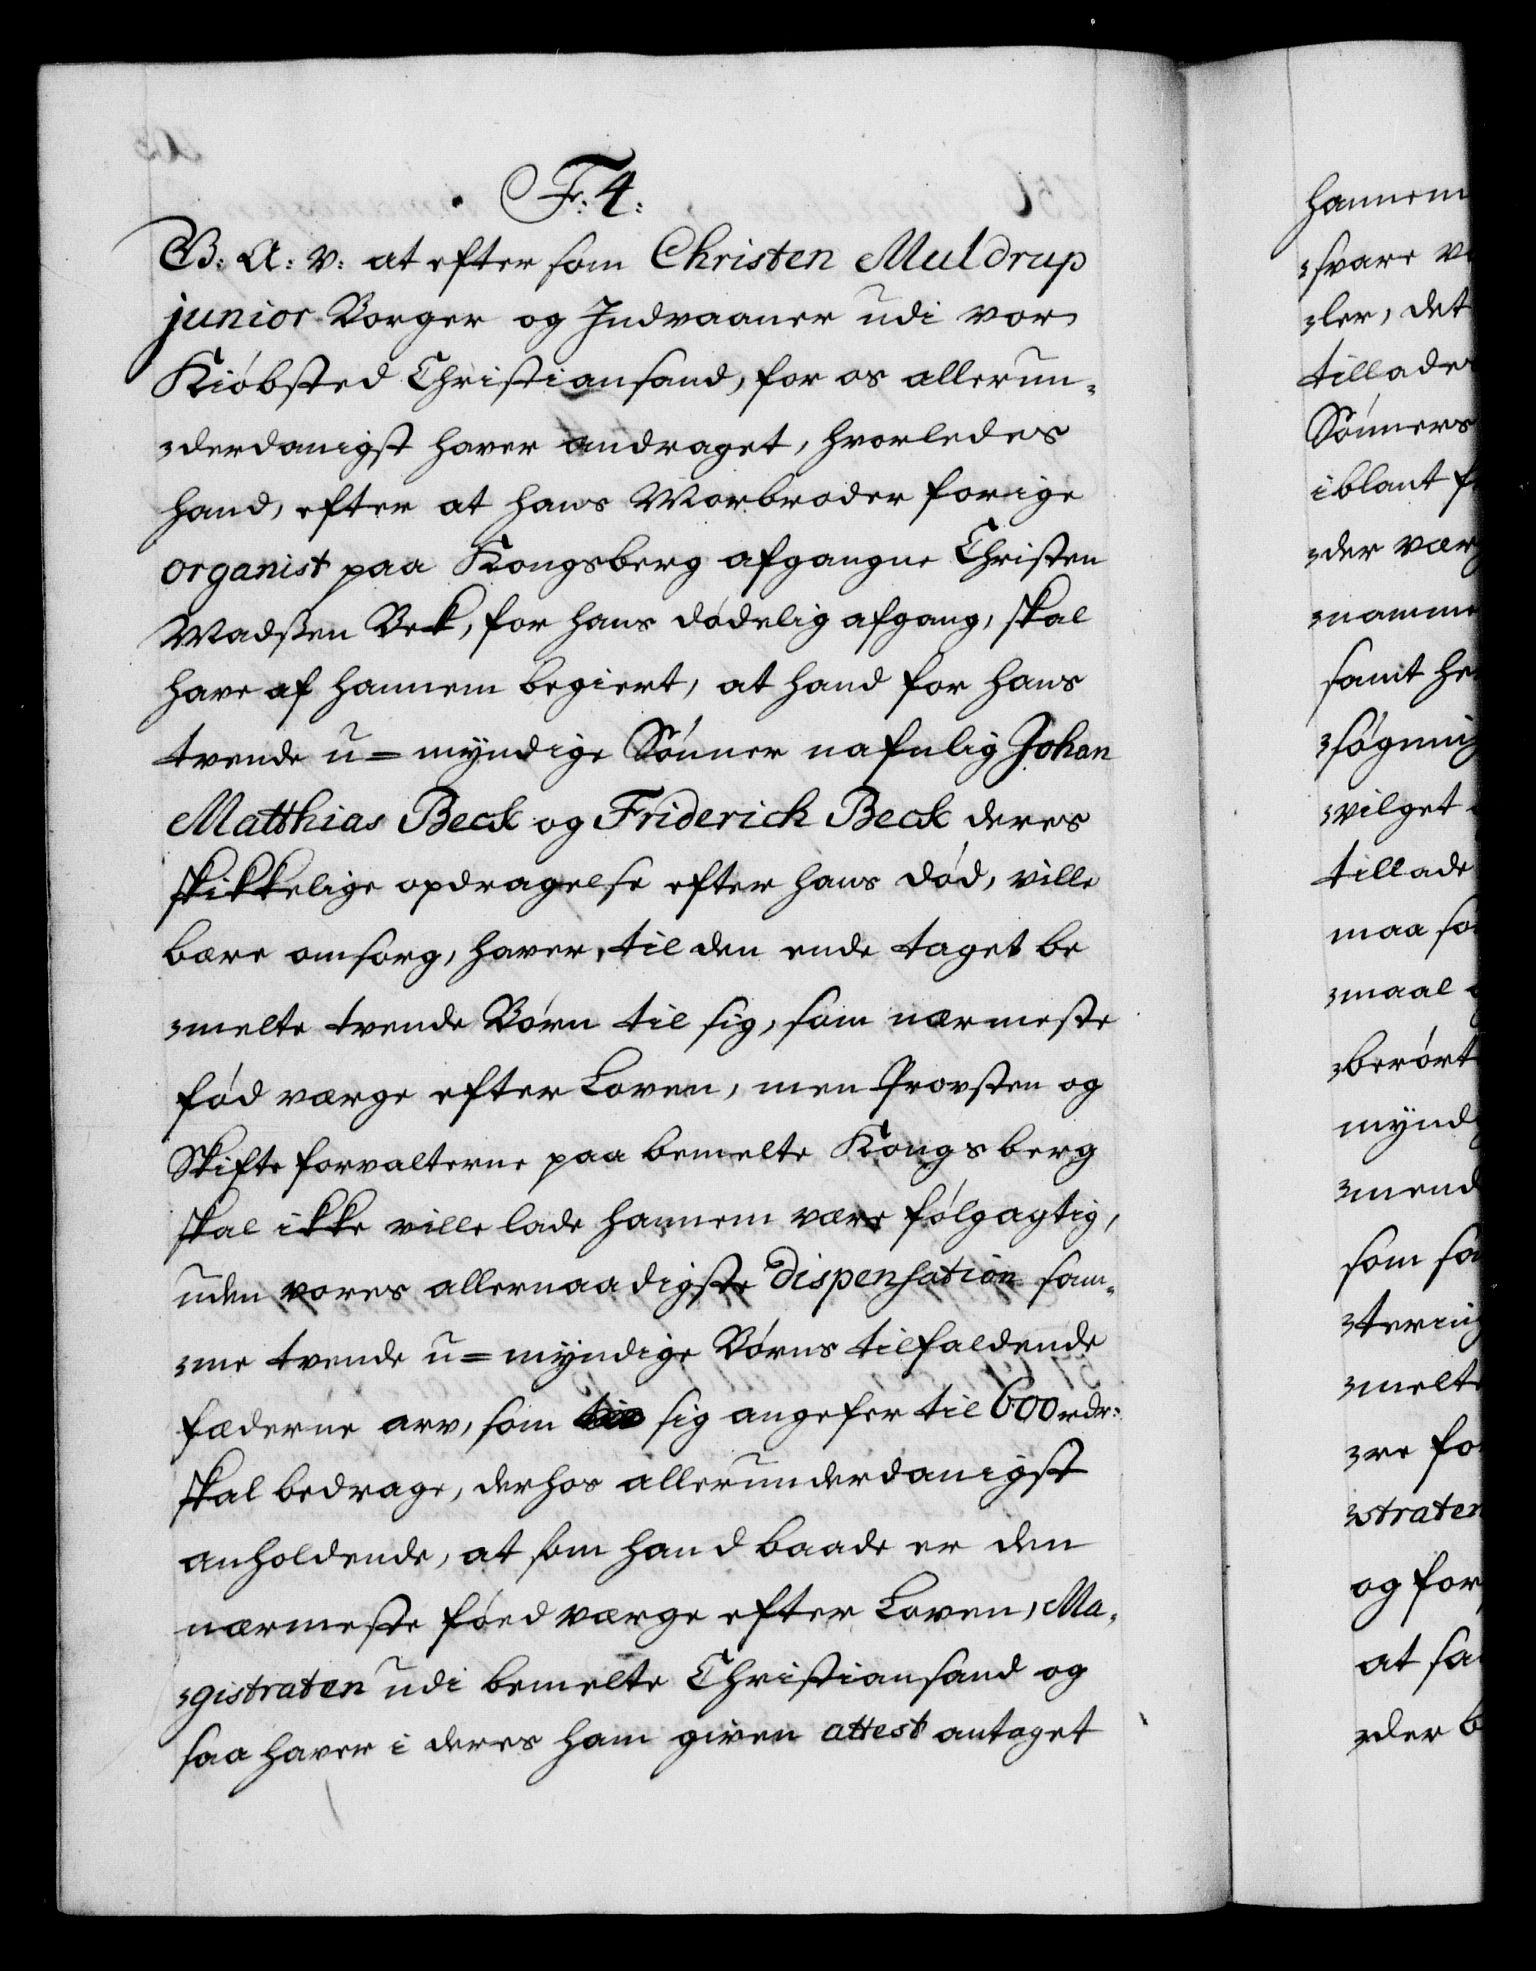 F: 4:
G: A: V: at efter som Christen Muldrup
junior Borger og Indvaaner udi vor
Kiøbsted Christiansand, for os allerun-
-derdanigst haver andraget, hvorledes
hand, efter at hans Morbroder forige
organist paa Kongsberg afgangne Christen
Madssen Bek, for hans dødelig afgang, skal
have af hannem begiert, at hand for hans
tvende u=myndige Sønner nafnlig Johan
Matthias Beck og Friderich Beck deres
skikkelige opdragelse efter hans død, ville
bære omsorg, haver, til den ende taget be
-melte tvende Børn til sig, som nærmeste
fød værge efter Loven, men Provsten og
Skifteforvalterne paa bemelte Kongsberg
skal ikke ville lade hannem være følgagtig,
uden vores allernaadigste dispensation sam-
-me tvende u=myndige Børns tilfaldende
fæderne arv, som sig angefer til 600 rdr:
skal bedrage, derhos allerunderdanigst
anholdende, at som hand baade er den
nærmeste føed værge efter Loven, Ma-
-gistraten udi bemelte Christiansand og
saa haver i deres ham given attest antaget
hannem
-svare
-ler, det
tillade
Sønners
iblant
-der
-namme
samt
-søgning
-vilget
tillade
maa
-maal
-berørt
mynd
-mend
som
-tering
-melte
-re
-straten
og for
at
-der